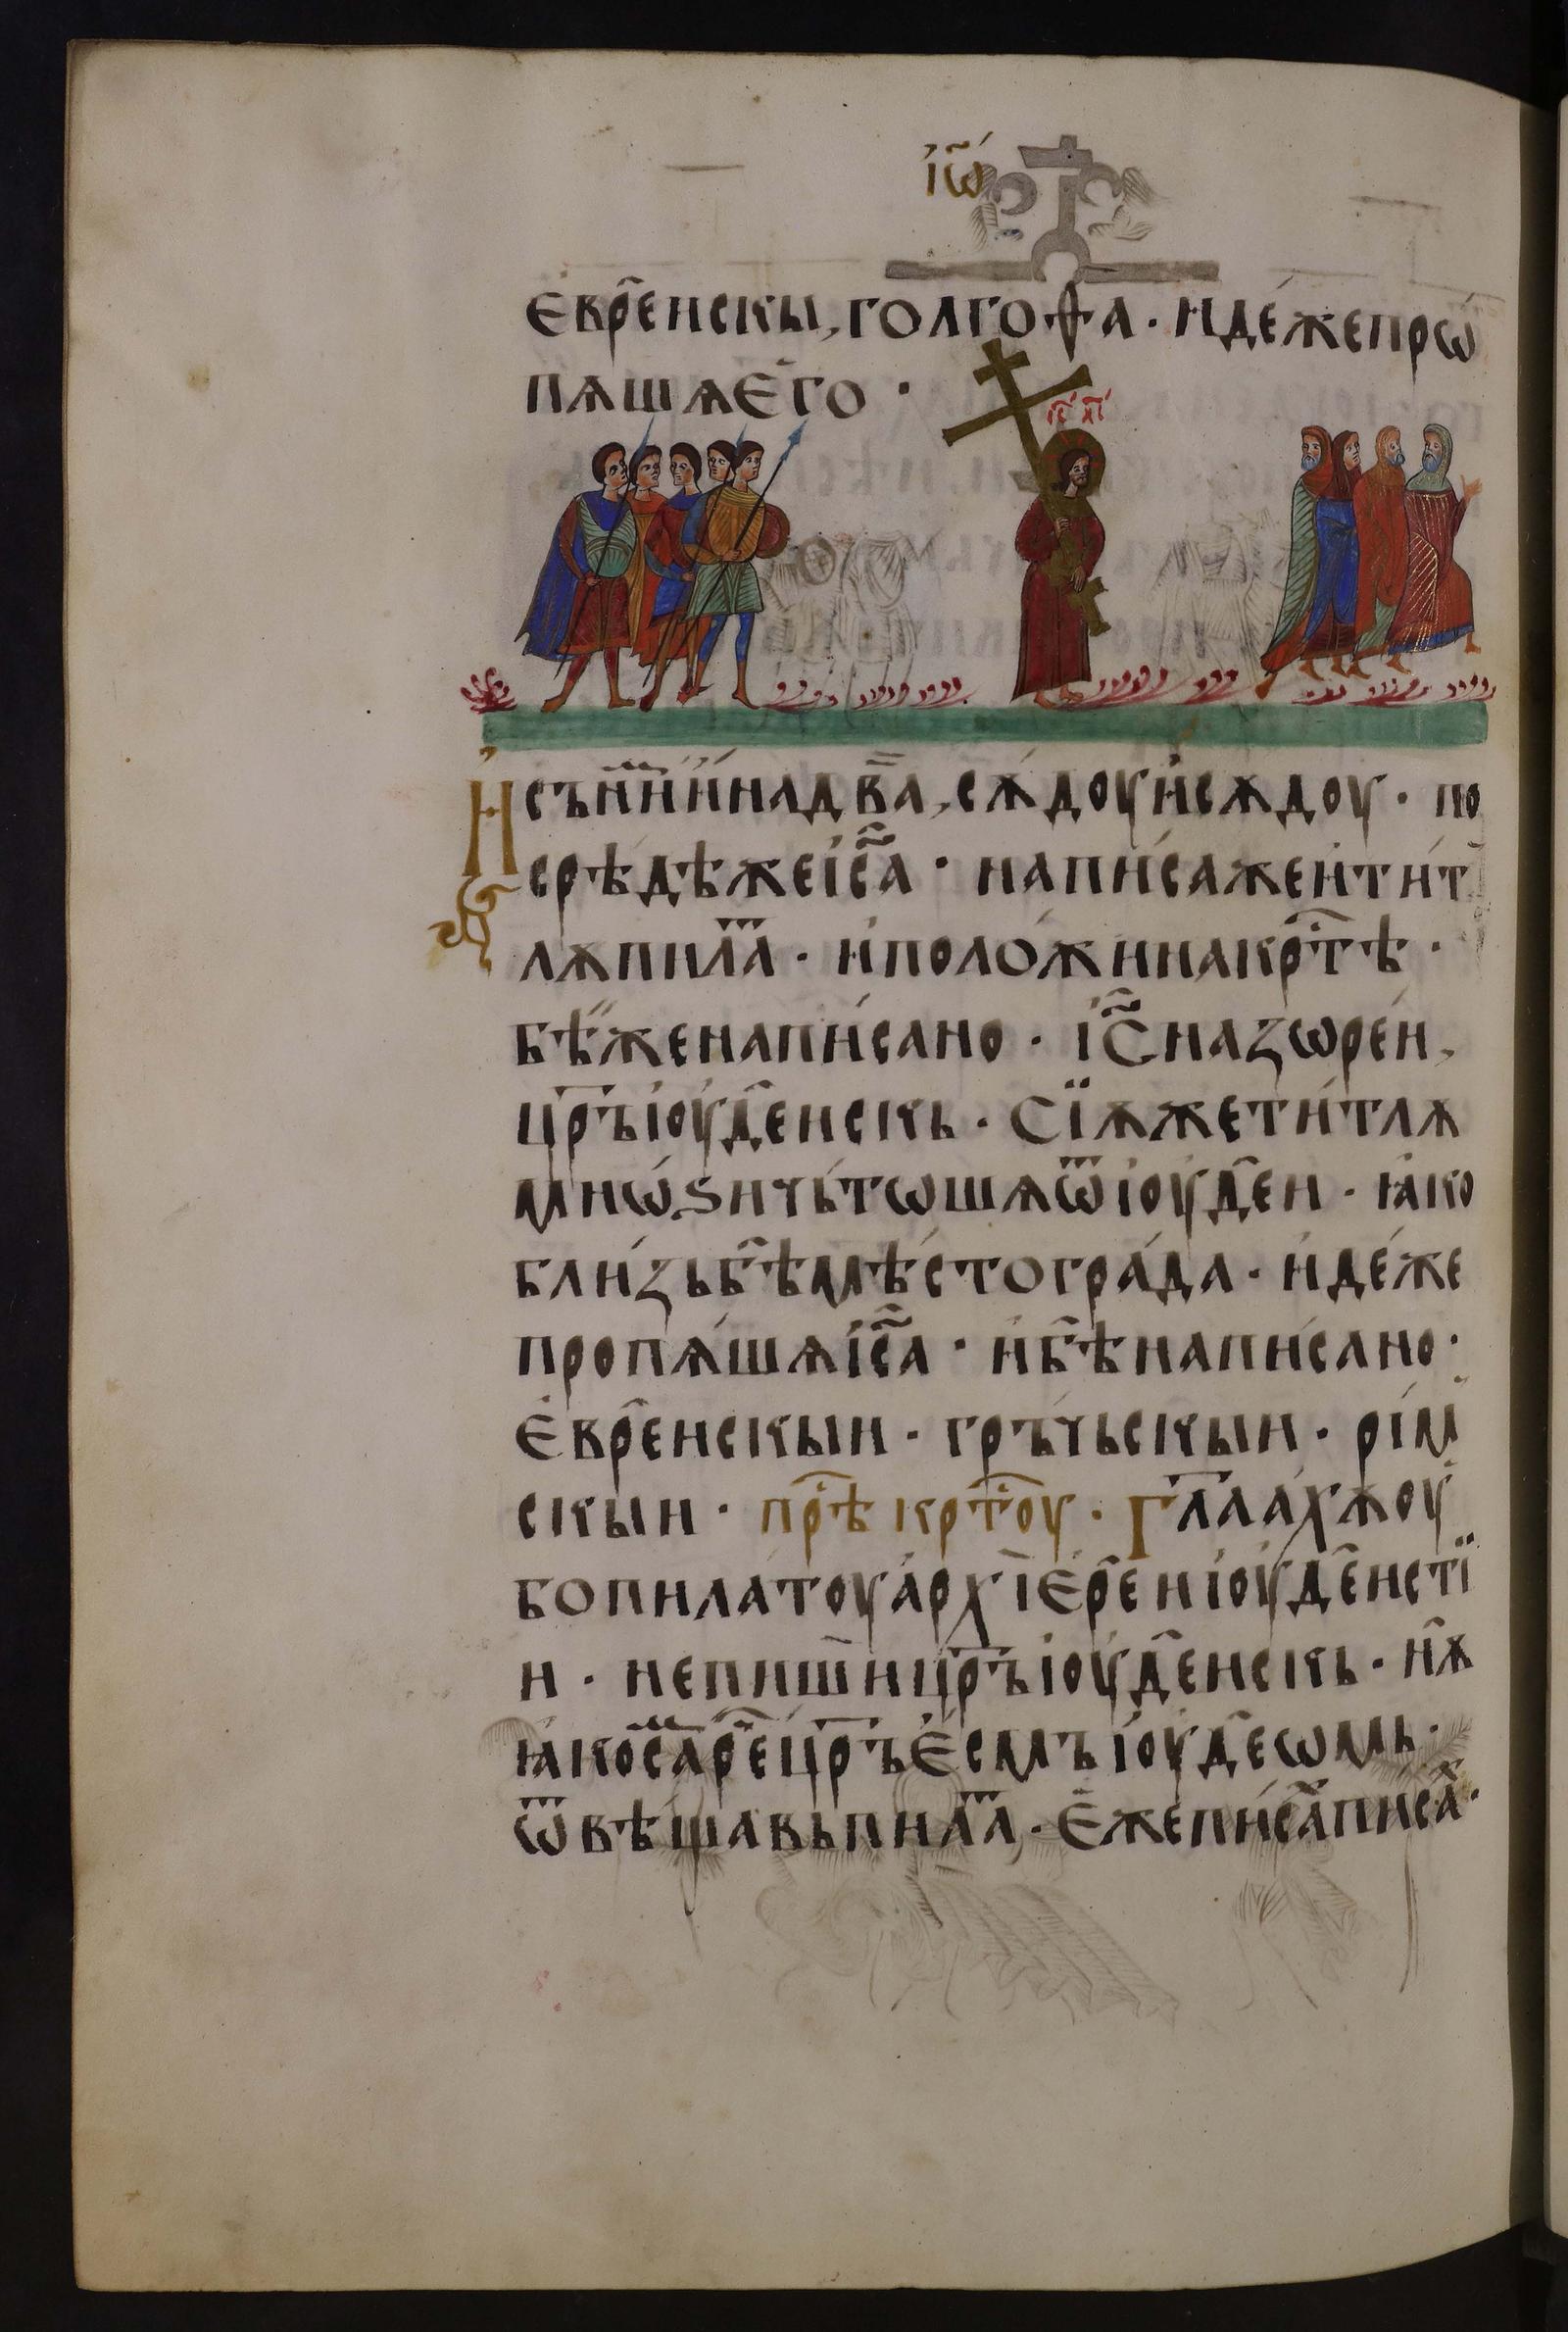 і҆ѡ҃
є҆вре̑искы, голгоѳа · идє́жепрѡ́
пѧшѧє҆го ·
ї҃с х҃с
И҆съни҄ми҆инадв҃а, сѫ́дꙋи҆сѫдꙋ · по
срѣдѣжеі҆с҃а · напи́сажеи҆ти́т
лѫпила́т · и҆поло́жинакрⷭ҇тѣ ·
бѣ́женапи́сано · і҆С҃назѡре́и,
цр҃ъіꙋде̑искь · Сїѫжети́тлѫ
мнѡ́ѕичь́тѡшѧѿіꙋде̑и · ꙗ҆ко
бли́зьбѣ̑мѣ́стогра́да · и҆дє́же
пропѧ́шѧі҆с҃а · и҆бѣ̑напи́сано ·
Є҆вре̑искыи · гръ́чьскыи · ри́м
скыи · прⷣѣ крⷭ҇тоу · Гл҃аахѫоу
бопила́тꙋа҆рхїере̑иіꙋде̑йстї
и · непиши̑цр҃ъіꙋде̑искь · нѫ̑
ꙗ҆коса́мре̑цр҃ъє҆смъіꙋде̑ѡмь ·
ѿвѣщавьпила́т · Є҆жепи́са̑писа́ ·